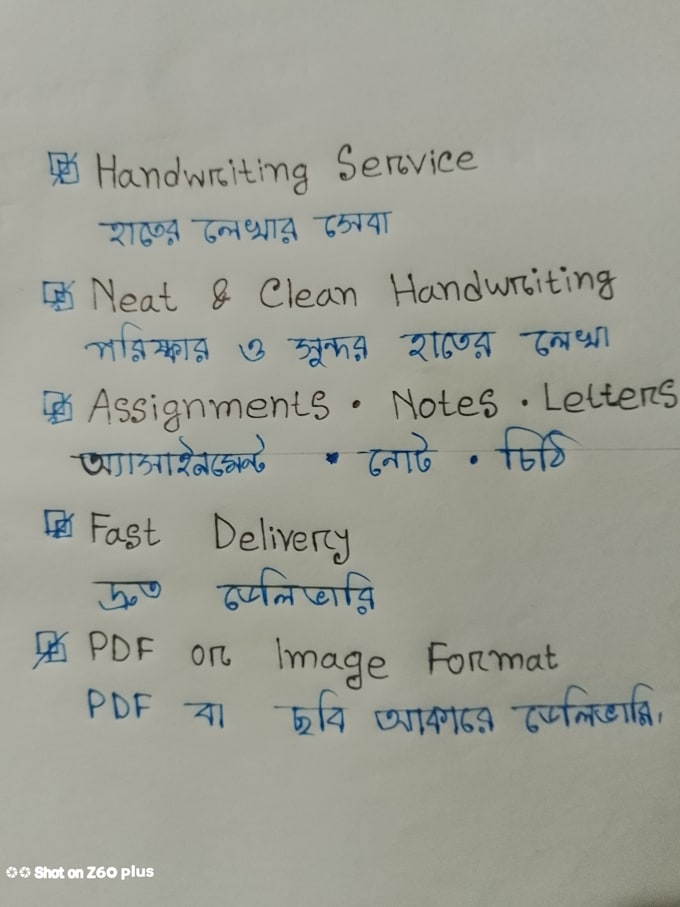 Handwriting Service
হাতের লেখার সেবা
Neat & Clean Handwriting
পরিস্কার ও সুন্দর হাতের লেখা
Assignments • Notes • Letters
অ্যাসাইনমেন্ট • নোট • চিঠি
Fast Delivery
দ্রুত ডেলিভারি
PDF or Image Format
PDF বা ছবি আকারে ডেলিভারি,
Shot on Z60 plus